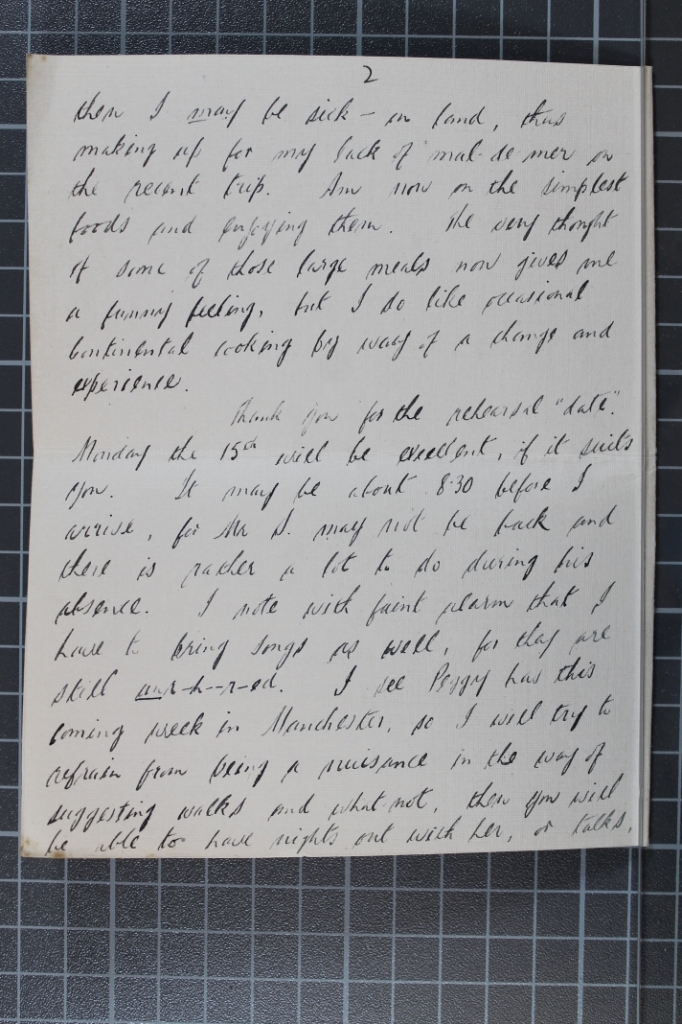 2
then I may be sick - on land, thus
making up for my lack of mal-de-mer on
the recent trip. Am now on the simplest
foods and enjoying them. The very thought
of some of those large meals now gives me
a funny feeling, but I do like occasional
Continental cooking by way of a change and
experience.
Thank you for the rehearsal "date".
Monday the 15th will be excellent, if it suits
you. It may be about 8.30 before I
arrive, for Mr S. may not be back and
there is rather a lot to do during his
absence. I note with faint alarm that I
have to bring songs as well, for they are
still
I see Peggy has this
coming week in Manchester, so I will try to
refrain from being a nuisance in the way of
suggesting walks and what-not, then you will
be able to have nights out with her, or talks,